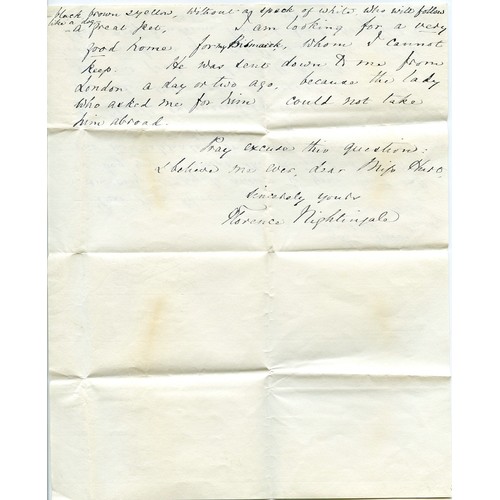 black brown & yellow, without a speck of white who will follow
like a dog
- a great pet, I am looking for a very
good home for my Bismarck, whom I cannot
keep. He was sent down to me from
London a day or two ago, because the lady
who asked me for him could not take
him abroad.
Pray excuse this question:
& believe me ever, dear Miss
sincerely yours
Florence Nightingale